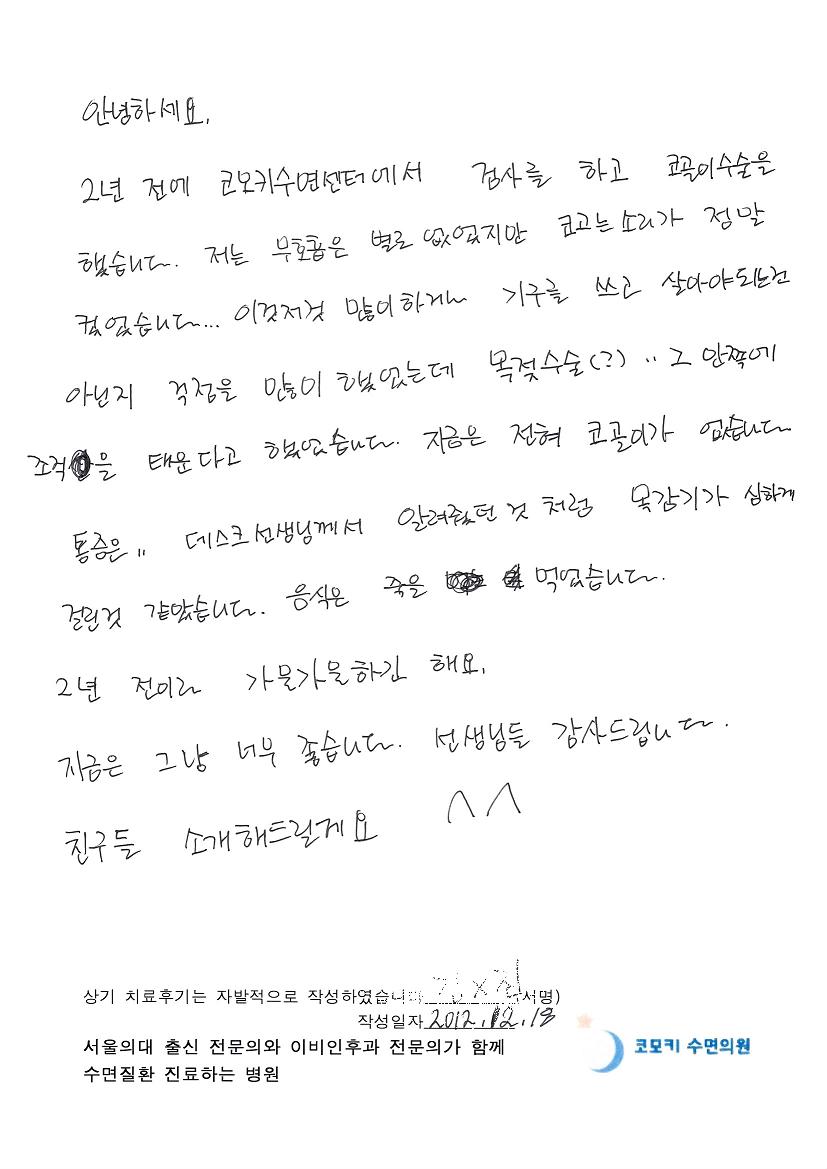 안녕하세요.
2년 전에 코모키수면센터에서 검사를 하고 코골이수술을
했습니다. 저는 무호흡은 별로 없었지만 코고는소리가 정말
컸었습니다... 이것저것 많이하거나 기구를 쓰고 살아야되는건
아닌지 걱정을 많이 했었는데 목젖수술(?).. 그 안쪽에
조직을 태운다고 했었습니다. 지금은 전혀 코골이가 없습니다
통증은.. 데스크선생님께서 알려줬던것 처럼 목감기가 심하게
걸린것 같았습니다. 음식은 죽을 먹었습니다.
2년 전이라 가물가물하긴 해요.
지금은 그냥 너무 좋습니다. 선생님들 감사드립니다.
친구들 소개해드릴게요 ^^
상기 치료후기는 자발적으로 작성하였습니다 서명)
작성일자 2012.12.18
서울의대 출신 전문의와 이비인후과 전문의가 함께
수면질환 진료하는 병원
코모키 수면의원